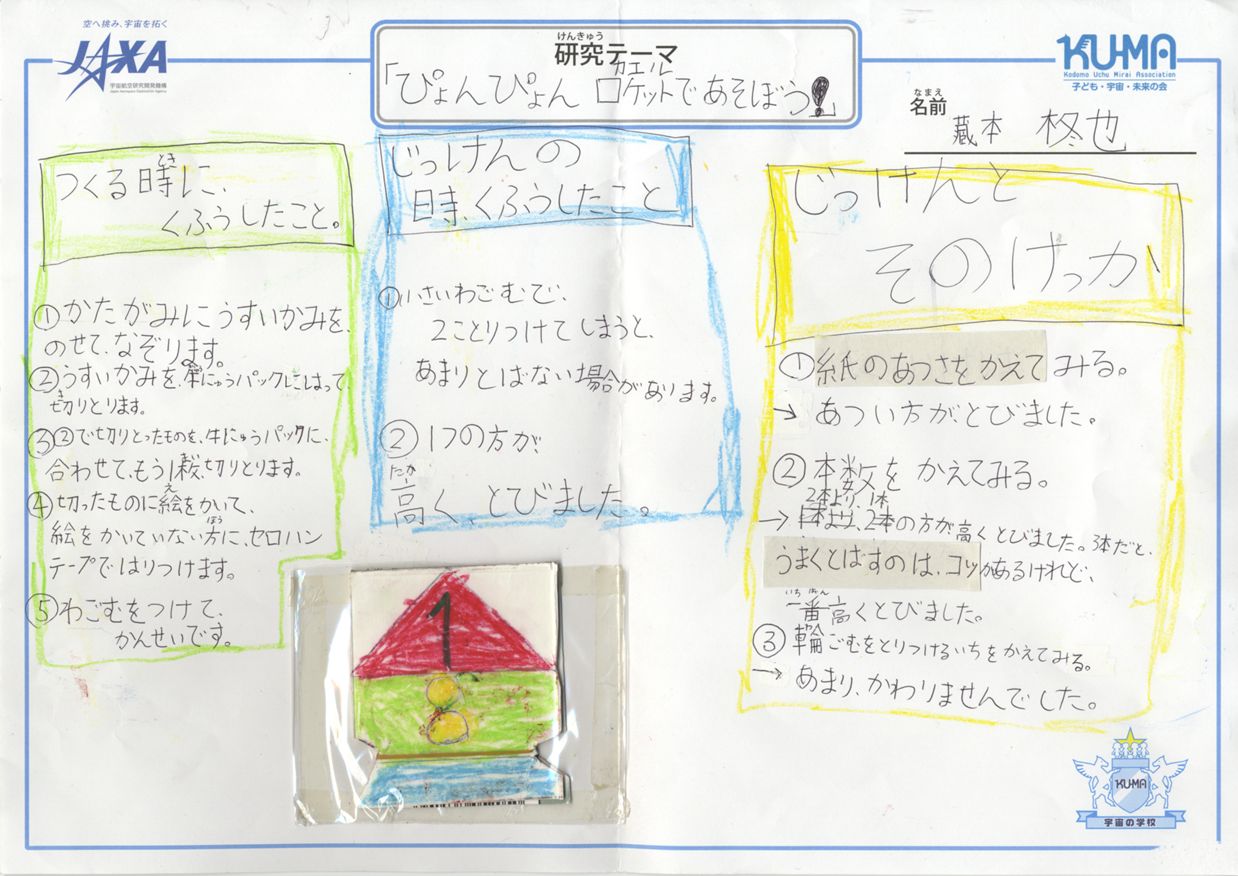 空へ挑み、宇宙を拓く
JAXA
宇宙航空研究開発機構
Japan Aerospace Exploration Agency
けんきゅう
研究テーマ
カエル
「ぴょんぴょん ロケットであそぼう!」
KU-MA
Kodomo Uchu Mirai Association
子ども・宇宙・未来の会
なまえ
名前
蔵本 柊也
とき
つくる時に、
くふうしたこと。
①かたがみにうすいかみを、
のせて、なぞります。
②うすいかみを、牛にゅうパックにはって
き
切りとります。
③②で切りとったものを、牛にゅうパックに、
合わせて、もう1枚、切りとります。
え
④切ったものに絵をかいて、
ほう
絵をかいていない方に、セロハン
テープではりつけます。
⑤わごむをつけて、
かんせいです。
じっけんの
時、くふうしたこと
①小さいわごむで、
2ことりつけてしまうと、
あまりとばない場合があります。
②1つの方が、
たか
高く、とびました。
じっけんと
そのけっか
①紙のあつさをかえてみる。
→あつい方が、とびました。
②本数をかえてみる。
2本より、1本
→1本より、2本の方が、高くとびました。3本だと、
うまくとばすのは、コツがあるけれど、
いちばん
一番高くとびました。
③輪ごむをとりつけるいちをかえてみる。
→あまり、かわりませんでした。
1
KU-MA
宇宙の学校